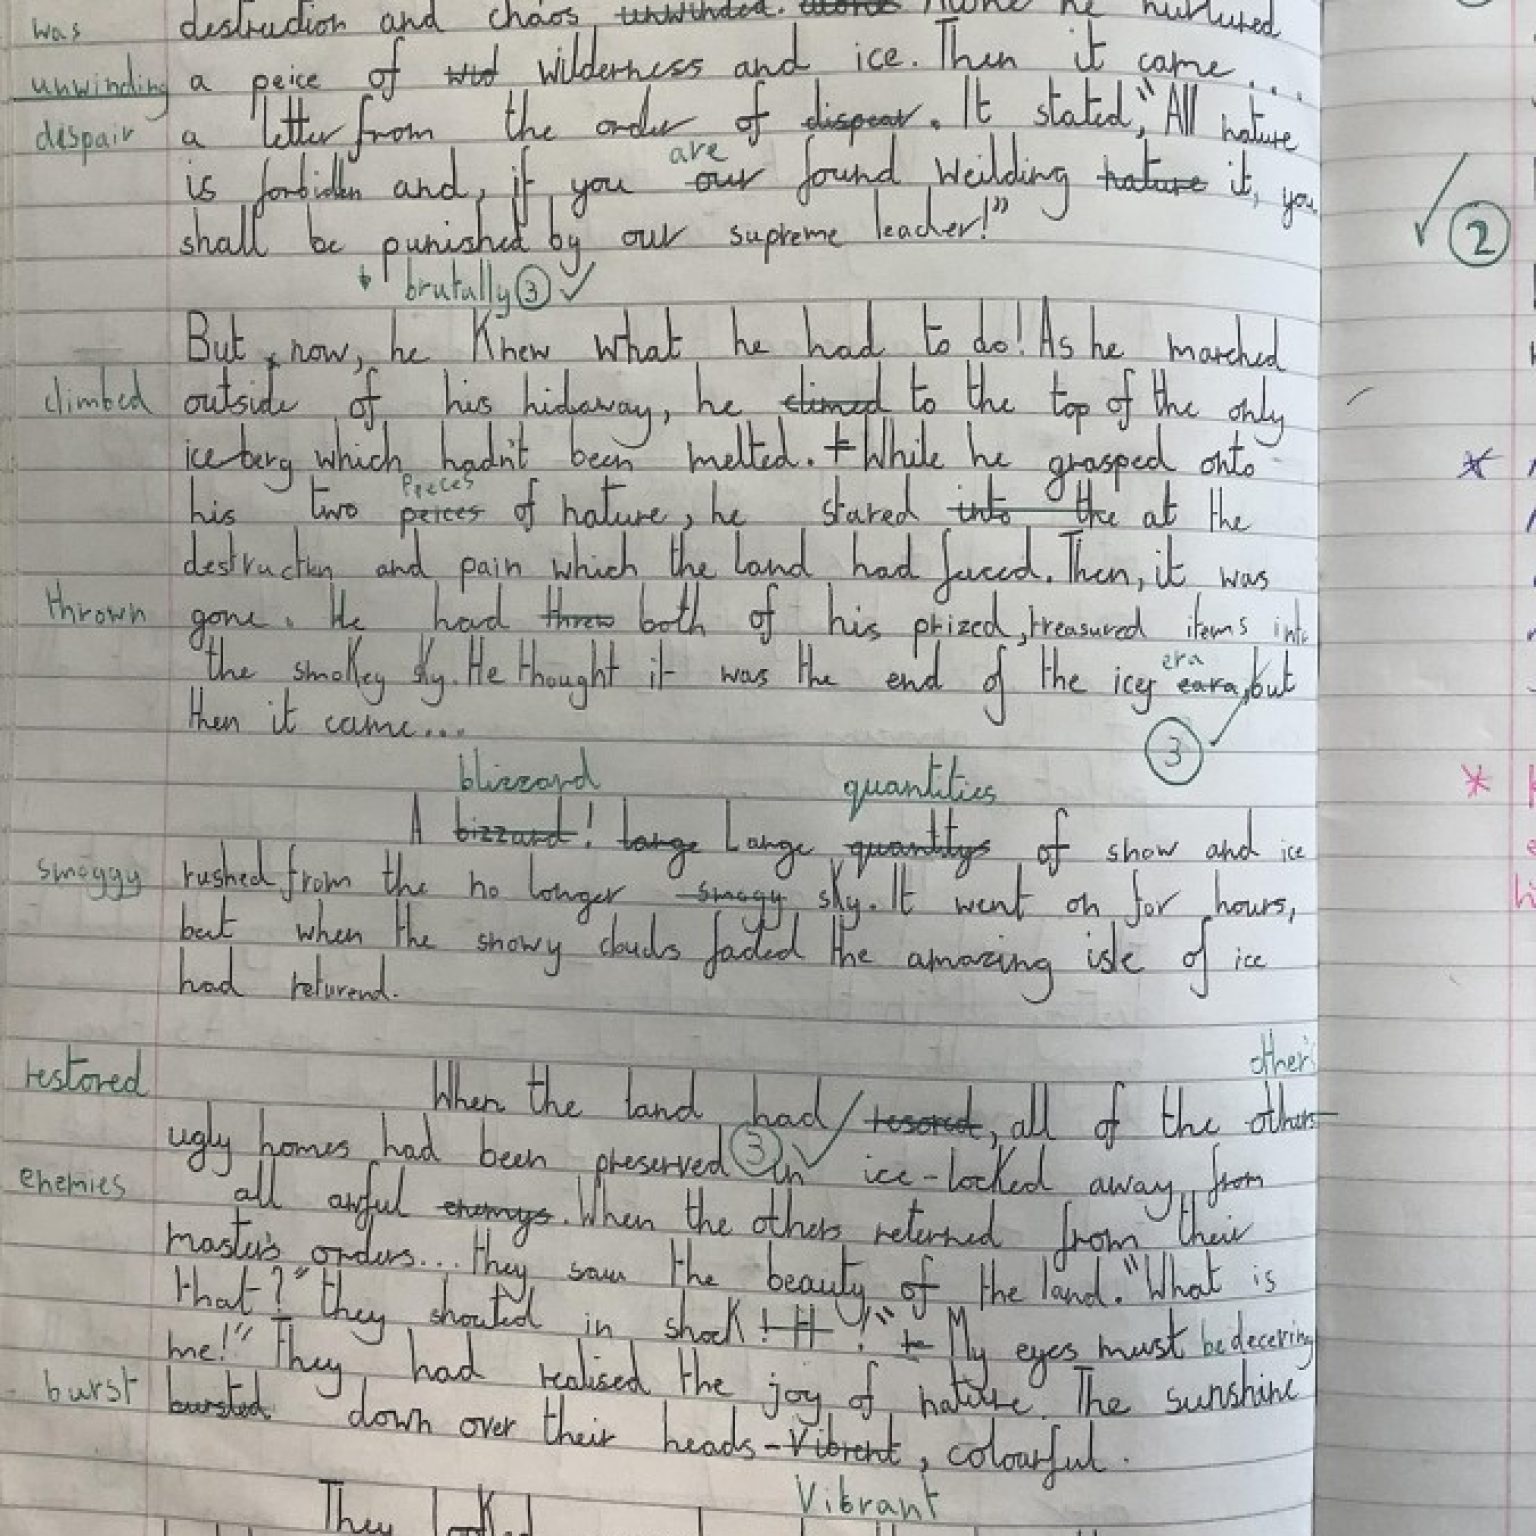 was destruction and chaos unwinded. alone Alone he nurtured
unwinding a peice of wid wilderness and ice. Then it came...
despair a letter from the order of dispear. It stated, "All nature
are
is forbidden and, if you our found weilding nature it, you
shall be punished by our supreme leader!"
brutally ③ ✓
②
But, now, he Knew what he had to do! As he marched
climbed outside of his hidaway, he climed to the top of the only
ice berg which hadn't been melted. While he grasped onto
Pieces
his two peices of nature, he stared into the at the
destruction and pain which the land had faced. Then, it was
thrown gone. He had threw both of his prized, treasured items into
era
the smoKey sky. He thought it was the end of the icey eara, but
then it came...
③
blizzard quantities
A bizzard! large Large quantitys of snow and ice
smoggy rushed from the no longer smogy sky. It went on for hours,
but when the snowy clouds faded the amazing isle of ice
had returend.
other's
restored When the land had resored, all of the others
ugly homes had been preserved ③ in ice-locKed away from
enemies all awful enemys. When the others returned from their
master's orders... they saw the beauty of the land. "What is
that?" they shouted in shocK! "My eyes must be decering
me!" They had realised the joy of nature. The sunshine
burst bursted down over their heads - Vibrent, colourful.
Vibrant
They looKed